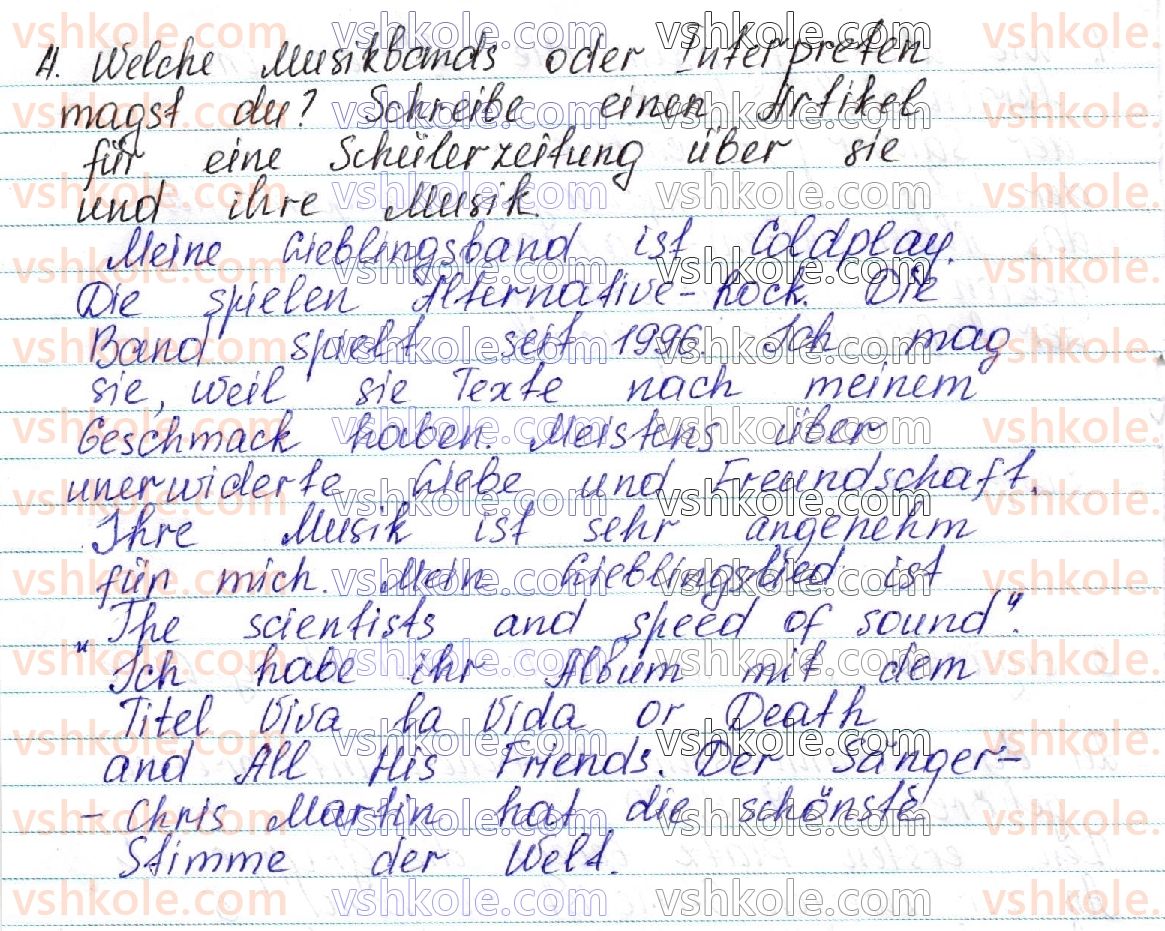 4. Welche Musikbands oder Interpreten
magst du? Schreibe einen Artikel
für eine Schülerzeitung über sie
und ihre Musik.
Meine Lieblingsband ist Coldplay.
Die spielen Alternative-Rock. Die
Band spielt seit 1996. Ich mag
sie, weil sie Texte nach meinem
Geschmack haben. Meistens über
unerwiderte Liebe und Freundschaft.
Ihre Musik ist sehr angenehm
für mich. Mein Lieblingslied ist
"The scientists and speed of sound".
Ich habe ihr Album mit dem
Titel Viva La Vida or Death
and All His Friends. Der Sänger-
- Chris Martin hat die schönste
Stimme der Welt.
vshkole.com